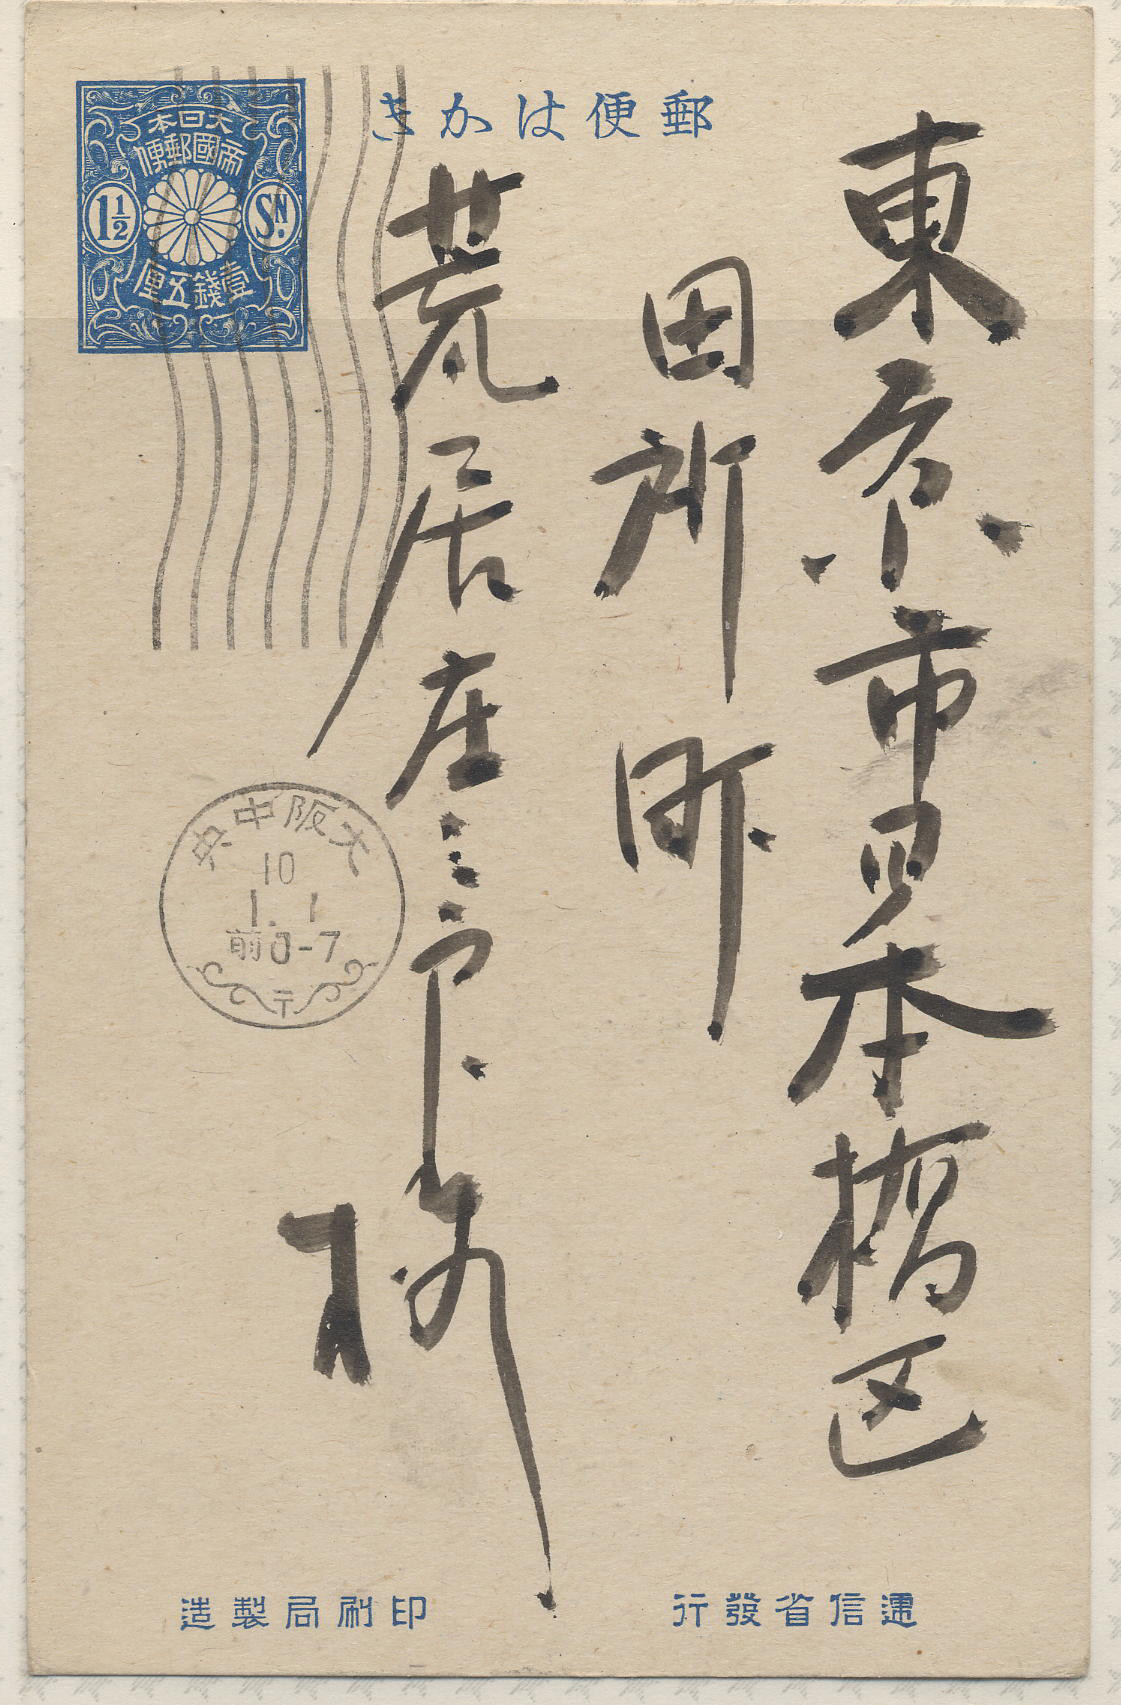 郵便はかき
大日本
帝國郵便
1½
SN.
壹錢五厘
東京市日本橋区
田所町
荒居庄三郎様
行
大阪中央
10
1. 1
前0-7
〒
遞信省發行
印刷局製造